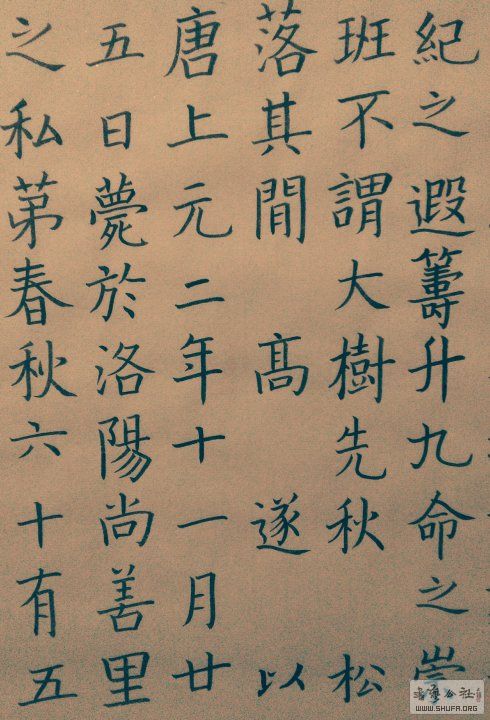 紀之遐籌升九命之崇
班不謂大樹先秋 松
落其間 髙 遂 以
唐上元二年十一月廿
五日薨於洛陽尚善里
之私苐春秋六十有五
WWW.SHUFA.ORG